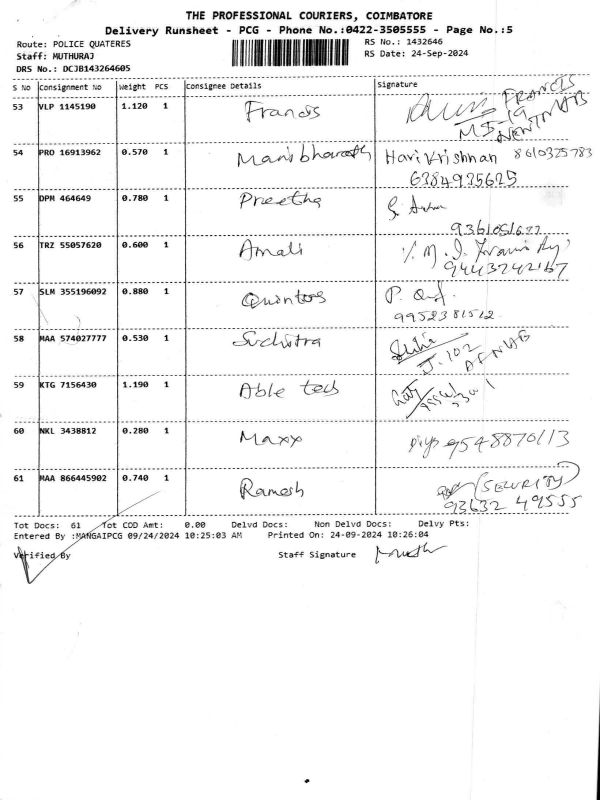 THE PROFESSIONAL COURIERS, COIMBATORE
Delivery Runsheet - PCG - Phone No.:0422-3505555 - Page No.:5
Route: POLICE QUATERES
RS No.: 1432646
Staff: MUTHURAJ
RS Date: 24-Sep-2024
DRS No.: DCJB143264605
S No Consignment No Weight PCS Consignee Details Signature
53 VLP 1145190 1.120 1 Francis FRANCIS
M5-19
54 PRO 16913962 0.570 1 Manibharath Hari Krishnan 8610325783
6384935625
55 DPM 464649 0.780 1 Preetha
9361051677
56 TRZ 55057620 0.600 1 Amali
9443242167
57 SLM 355196092 0.880 1 Quintos
9952381512
58 MAA 574027777 0.530 1 Suchitra
J-102
59 KTG 7156430 1.190 1 Able tech
60 NKL 3438812 0.280 1 Maxx 9548870113
61 MAA 866445902 0.740 1 Ramesh (SECURITY)
93632 49555
Tot Docs: 61 Tot COD Amt: 0.00 Delvd Docs: Non Delvd Docs: Delvy Pts:
Entered By :MANGAIPCG 09/24/2024 10:25:03 AM Printed On: 24-09-2024 10:26:04
Verified By Staff Signature